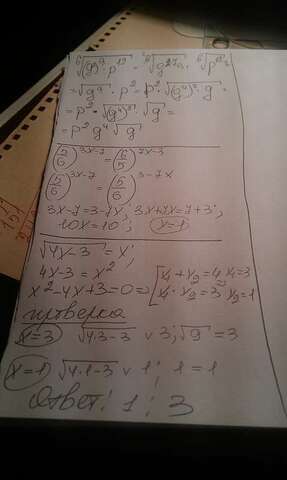 ⁶√((g)⁹·p¹²) = ⁶√g²⁷ · ⁶√p¹² =
= √g⁹ · p² = p² · √((g⁴)²·g) =
= p² · √(g⁴)² · √g =
= p² g⁴ √g
(5/6)^(3x-7) = (6/5)^(7x-3)
(5/6)^(3x-7) = (5/6)^(3-7x)
3x-7=3-7x; 3x+7x=7+3;
10x=10; x=1
√(4x-3) = x;
4x-3 = x²
x²-4x+3=0 => [x₁+x₂=4 x₁=3
x₁·x₂=3 x₂=1
проверка
x=3 √(4·3-3) v 3; √9 = 3
x=1 √(4·1-3) v 1; 1=1
Ответ: 1; 3